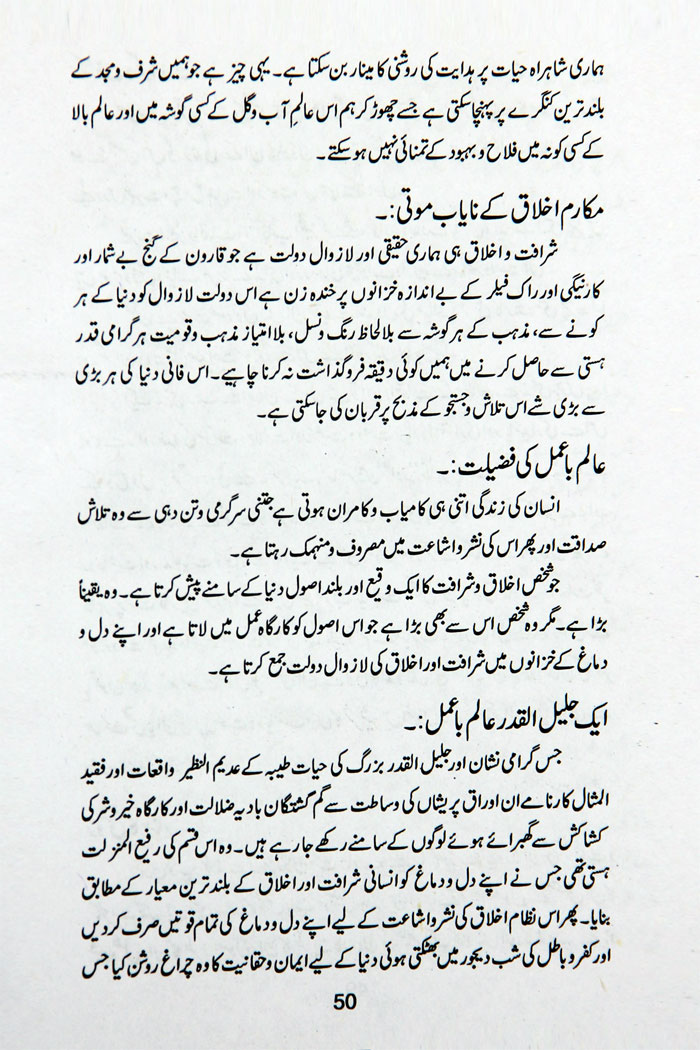 ہماری شاہراہ حیات پر ہدایت کی روشنی کا مینار بن سکتا ہے۔ یہی چیز ہے جو ہمیں شرف و مجد کے
بلند ترین کنگرے پر پہنچا سکتی ہے جسے چھوڑ کر ہم اس عالمِ آب و گل کے کسی گوشہ میں اور عالم بالا
کے کسی کونہ میں فلاح و بہبود کے تمنائی نہیں ہو سکتے۔
مکارم اخلاق کے نایاب موتی:۔
شرافت و اخلاق ہی ہماری حقیقی اور لازوال دولت ہے جو قارون کے گنج بے شمار اور
کارنیگی اور راک فیلر کے بے اندازہ خزانوں پر خندہ زن ہے اس دولت لازوال کو دنیا کے ہر
کونے سے، مذہب کے ہر گوشہ سے بلالحاظ رنگ و نسل، بلا امتیاز مذہب و قومیت ہر گرامی قدر
ہستی سے حاصل کرنے میں ہمیں کوئی دقیقہ فروگذاشت نہ کرنا چاہیے۔ اس فانی دنیا کی ہر بڑی
سے بڑی شے اس تلاش و جستجو کے مذبح پر قربان کی جا سکتی ہے۔
عالم باعمل کی فضیلت:۔
انسان کی زندگی اتنی ہی کامیاب و کامران ہوتی ہے جتنی سرگرمی و تن دہی سے وہ تلاش
صداقت اور پھر اس کی نشر و اشاعت میں مصروف و منہمک رہتا ہے۔
جو شخص اخلاق و شرافت کا ایک وقیع اور بلند اصول دنیا کے سامنے پیش کرتا ہے۔ وہ یقیناً
بڑا ہے۔ مگر وہ شخص اس سے بھی بڑا ہے جو اس اصول کو کارگاہ عمل میں لاتا ہے اور اپنے دل و
دماغ کے خزانوں میں شرافت اور اخلاق کی لازوال دولت جمع کرتا ہے۔
ایک جلیل القدر عالم باعمل:۔
جس گرامی نشان اور جلیل القدر بزرگ کی حیات طیبہ کے عدیم النظیر واقعات اور فقید
المثال کارنامے ان اوراق پریشاں کی وساطت سے گم گشتگان بادیہ ضلالت اور کارگاہ خیر و شر کی
کشاکش سے گھبرائے ہوئے لوگوں کے سامنے رکھے جا رہے ہیں۔ وہ اس قسم کی رفیع المنزلت
ہستی تھی جس نے اپنے دل و دماغ کو انسانی شرافت اور اخلاق کے بلند ترین معیار کے مطابق
بنایا۔ پھر اس نظام اخلاق کی نشر و اشاعت کے لیے اپنے دل و دماغ کی تمام قوتیں صرف کر دیں
اور کفر و باطل کی شب دیجور میں بھٹکتی ہوئی دنیا کے لیے ایمان و حقانیت کا وہ چراغ روشن کیا جس
50